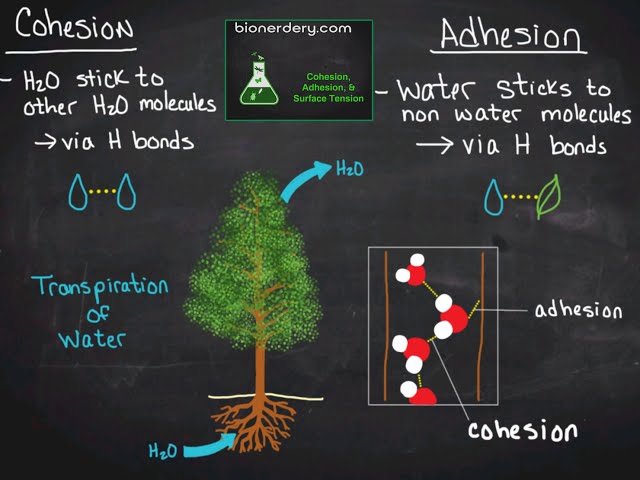 Cohesion
- H₂O stick to
other H₂O molecules
→ via H bonds
bionerdery.com
Cohesion,
Adhesion, &
Surface Tension
Adhesion
- Water sticks to
non water molecules
→ via H bonds
H₂O
Transpiration
of
Water
adhesion
cohesion
H₂O